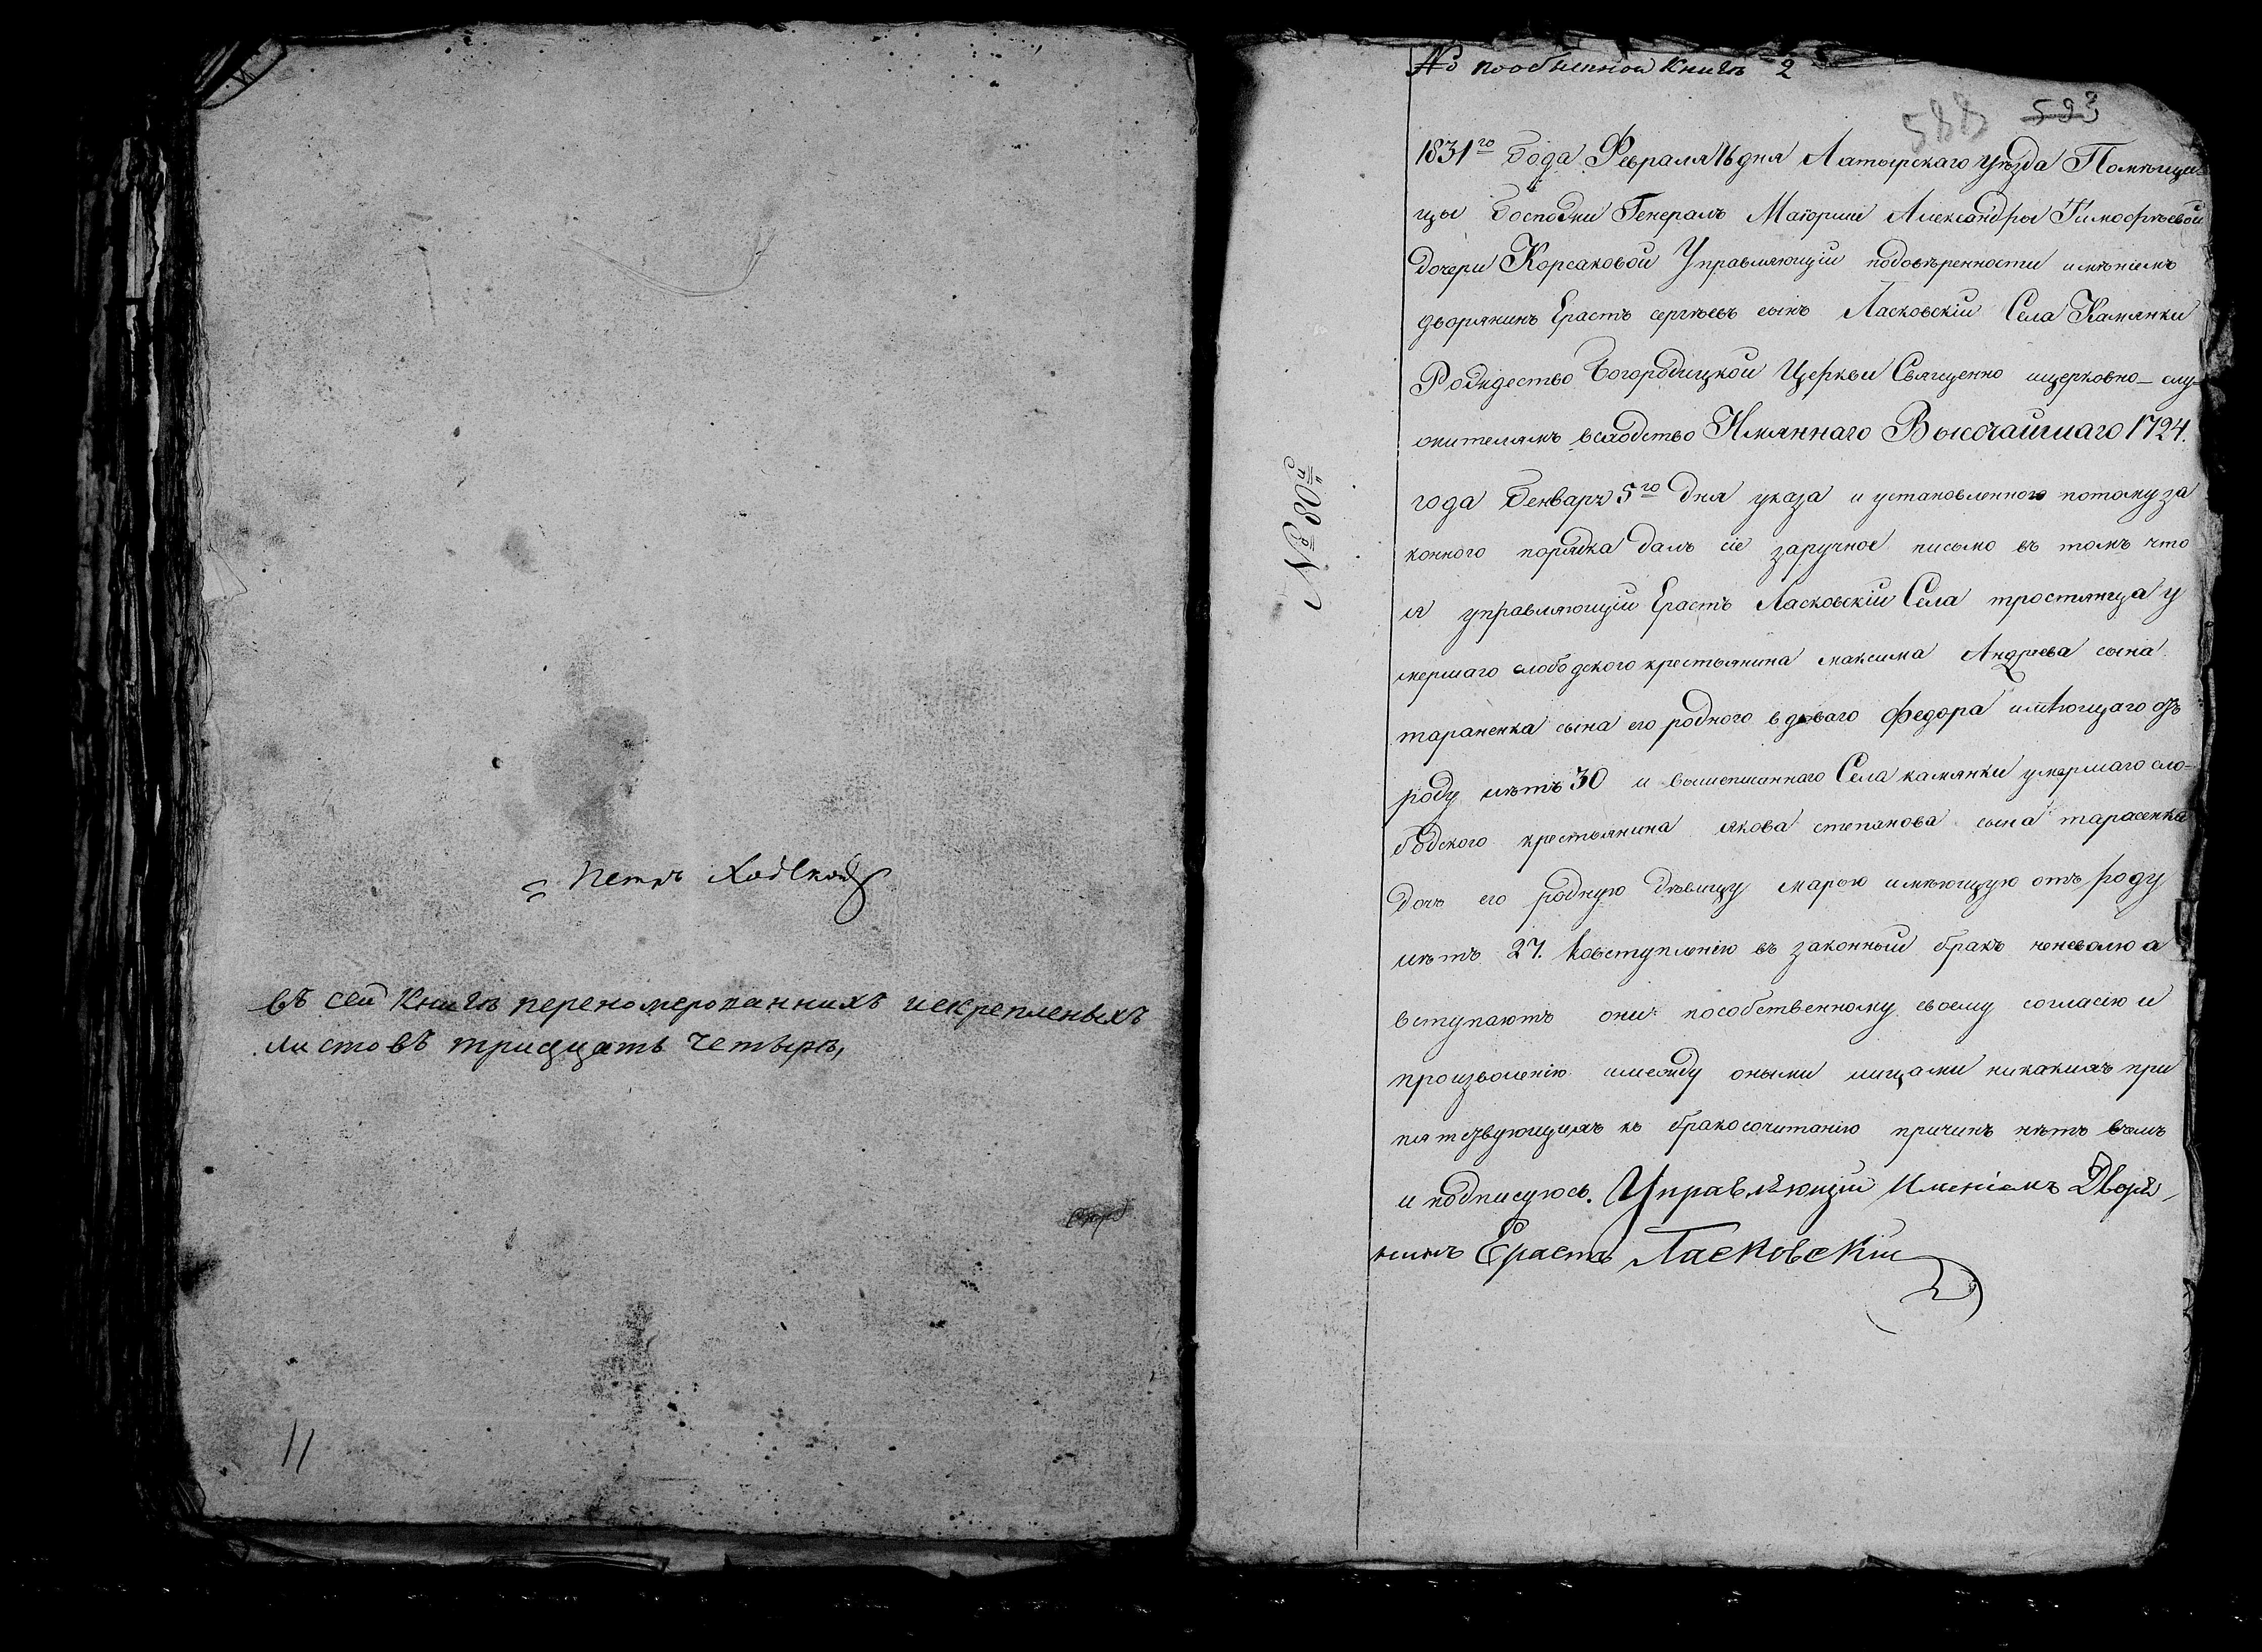 Петръ
въ сей Книгѣ перенумерованнихъ искрепленыхъ
листовъ тридцать четыри,
11
№ пообыскной Книгѣ 2
588 593
№ 80й
1831го Года Февраля 16 дня Ахтырскаго уѣзда Помѣщи
цы Госпожи Генералъ Маіорши Александры Тимофѣевой
дочери Корсаковой Управляющій подовѣренности имѣніемъ
дворянинъ Ерастъ сергѣевъ сынъ Ласковскій Села Камянки
Рождество Богородицкой Церкви Священно ицерковно-слу-
жителямъ въслѣдство Имяннаго Высочайшаго 1724.
года Генваря 5го дня указа и установленного потому за
конного порядка далъ сіе заручное письмо въ томъ что
я управляющій Ерастъ Ласковскій Села тростянца у
мершаго слободского крестьянина максима Андрѣева сына
тараненка сына его родного вдоваго федора имѣющаго отъ
роду лѣтъ 30 и вышеписаннаго Села камянки умершаго сло-
бодского крестьянина якова степанова сына тарасенка
дочь его родную дѣвицу марью имѣющую отъ роду
лѣтъ 27. ковступленію въ законный бракъ неневолю а
вступаютъ они пособственному своему согласію и
произволенію имежду оными лицами никакихъ при
пятствующихъ къ бракосочитанію причинъ нѣтъ вчемъ
и подписуюсь. Управляющій Имениемъ Дворя,
нинъ Ерастъ Ласковскій